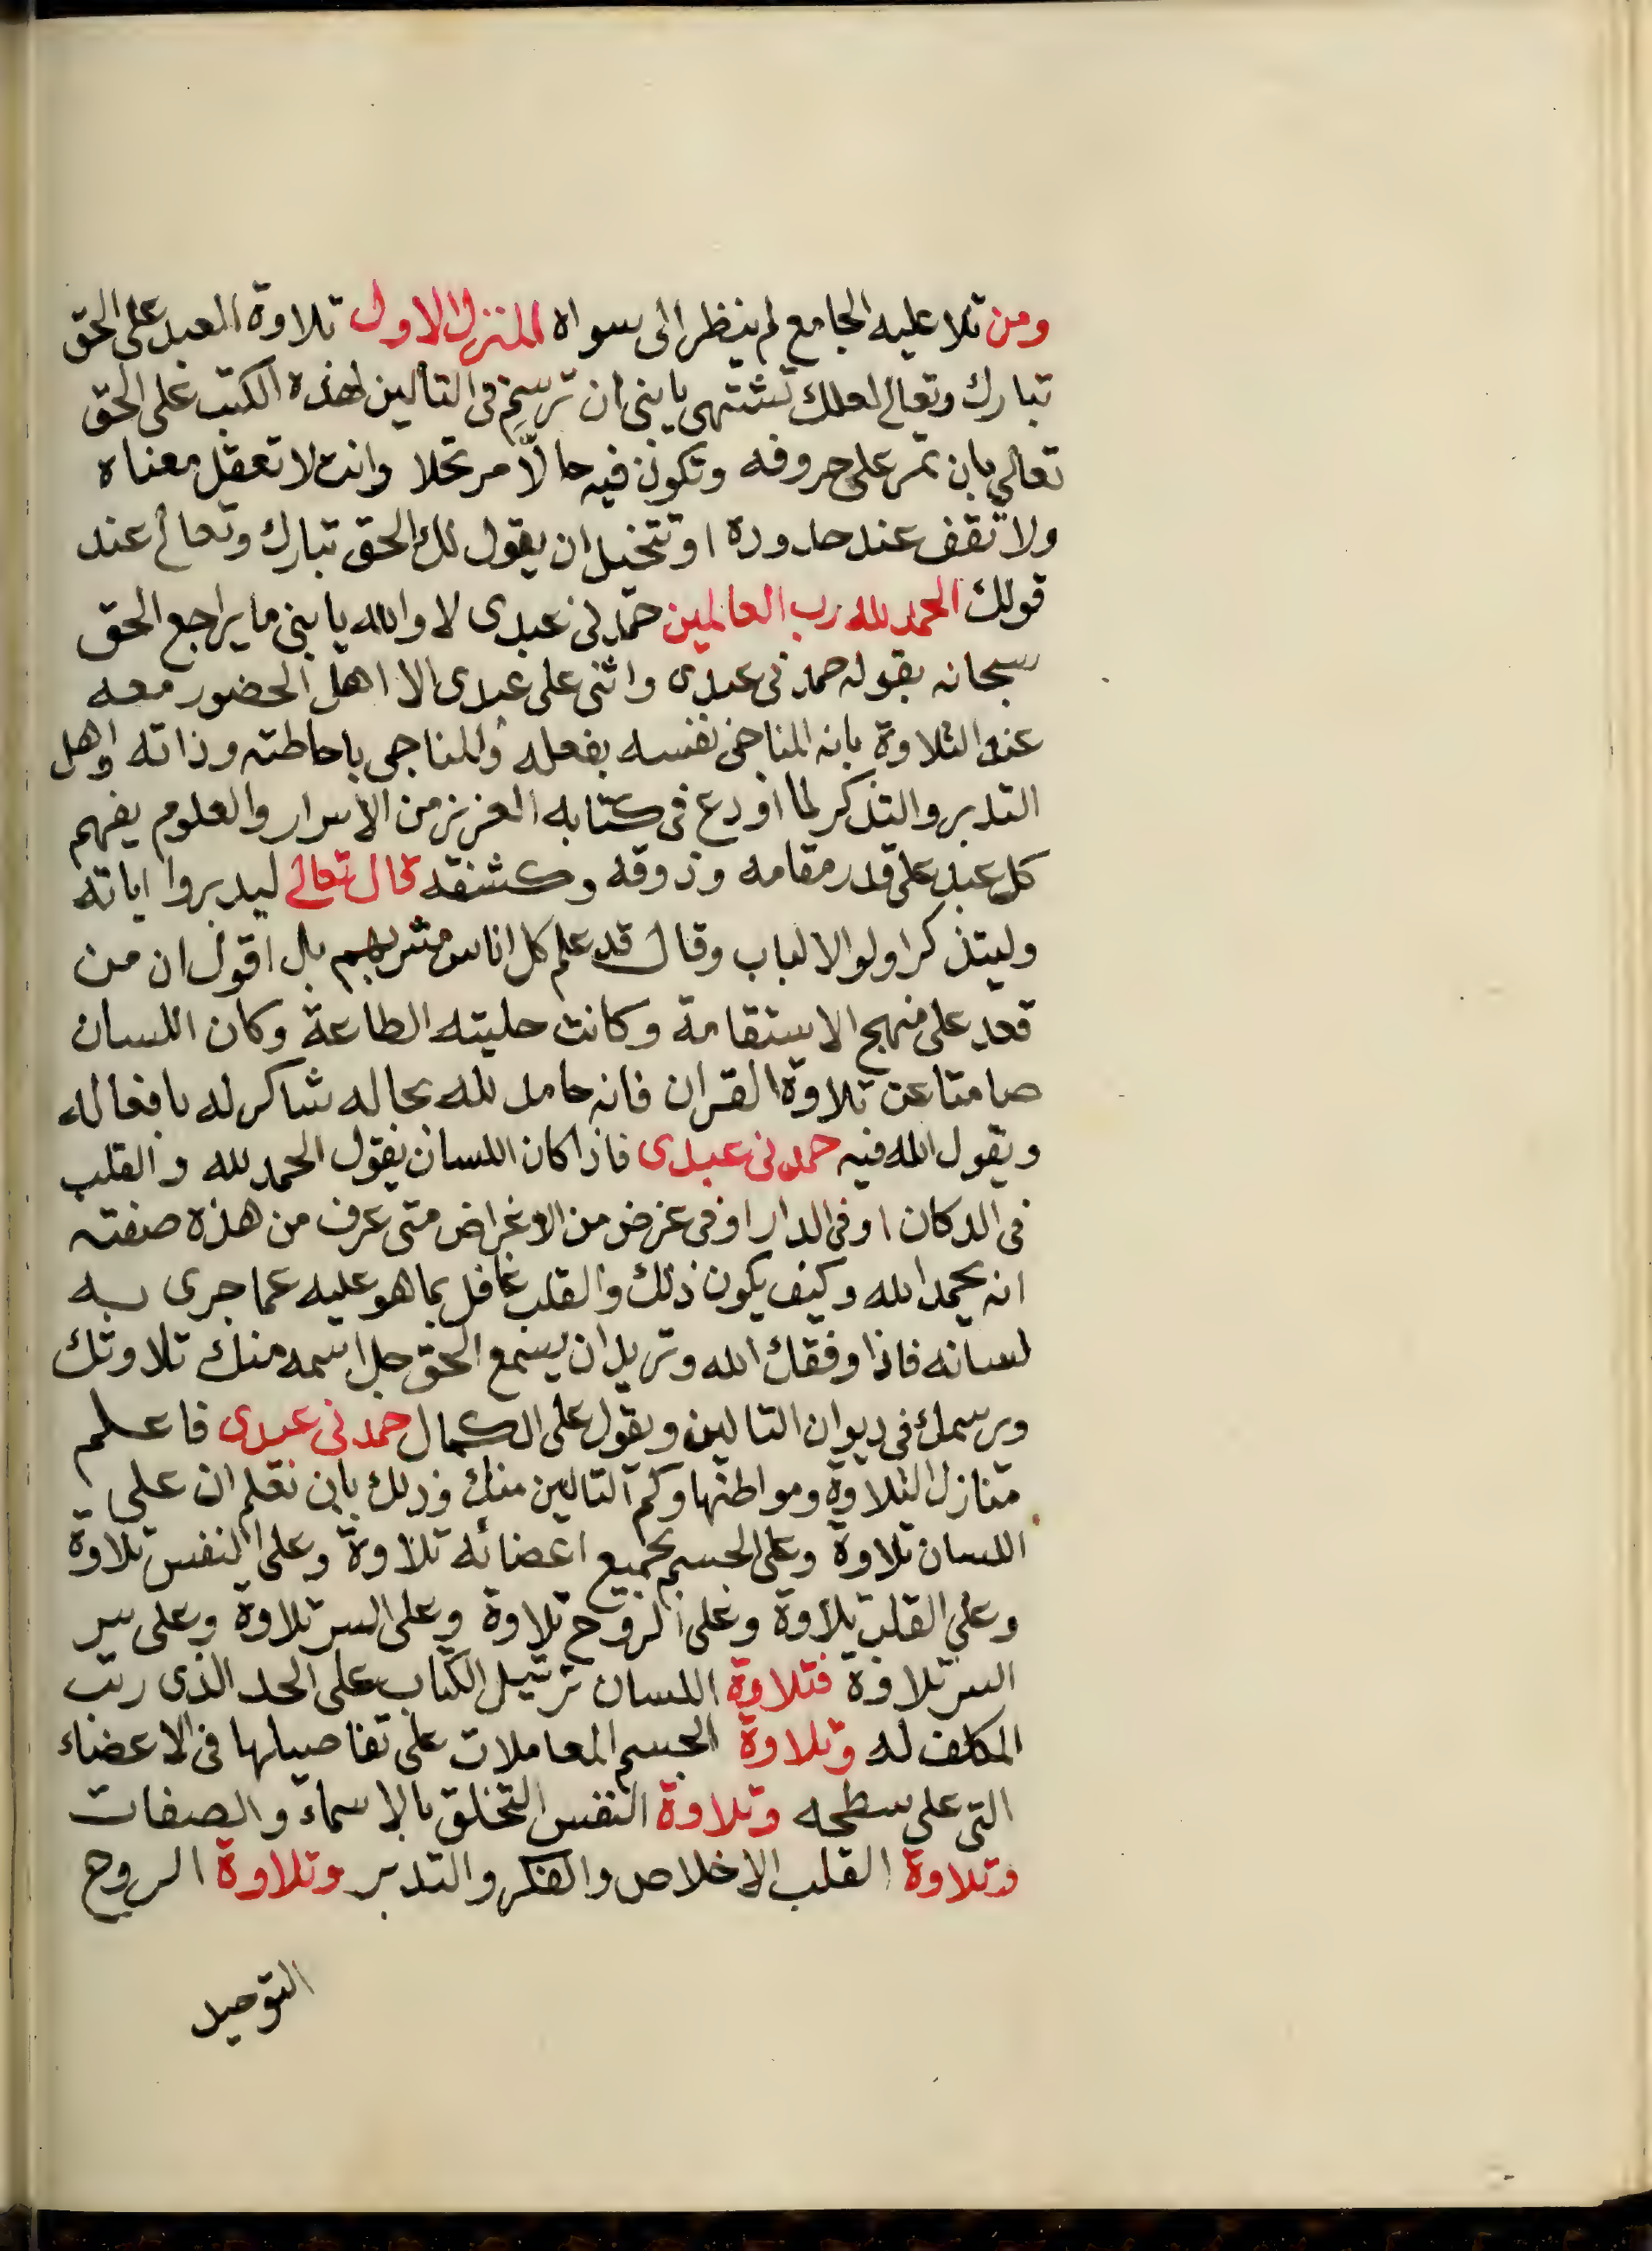 ومن تلا عليه الجامع لم ينظر الى سواه المنزل الاول تلاوة العبد على الحق
تبارك وتعالى لعلك تشتهى يا بنى ان ترسخ فى التالين لهذه الكتب على الحق
تعالى بان تمر على حروفه وتكون فيه حالّا مرتحلا وانت لا تعقل معناه
ولا تقف عند حدوده او تتخيل ان يقول لك الحق تبارك وتعالى عند
قولك الحمد لله رب العالمين حمّدنى عبدى لا والله يا بنى ما يراجع الحق
سبحانه بقوله حمدنى عبدى واثنى على عبدى الا اهل الحضور معه
عند التلاوة بانه المناجى نفسه بفعله والمناجى باحاطته وذاته واهل
التدبر والتذكر لما اودع فى كتابه العزيز من الاسرار والعلوم يفهم
كل عبد على قدر مقامه وذوقه وكشفه قال تعالى ليدبروا اياته
وليتذكر اولو الالباب وقال قد علم كل اناس مشربهم بل اقول ان من
قعد على منهج الاستقامة وكانت حليته الطاعة وكان اللسان
صامتا عن تلاوة القران فانه حامد لله بحاله شاكر له بافعاله
ويقول الله فيه حمدنى عبدى فاذا كان اللسان يقول الحمد لله والقلب
فى الدكان او فى الدار او فى عرض من الاغراض متى عرف من هذه صفته
انه يحمد الله وكيف يكون ذلك والقلب غافل بما هو عليه عما جرى به
لسانه فاذا وفقك الله وتريد ان يسمع الحق جل اسمه منك تلاوتك
ويرسمك فى ديوان التالين ويقول على الكمال حمدنى عبدى فاعلم
منازل التلاوة ومواطنها وكم التالين منك وذلك بان تعلم ان على
اللسان تلاوة وعلى الجسم بجميع اعضائه تلاوة وعلى النفس تلاوة
وعلى القلب تلاوة وعلى الروح تلاوة وعلى السر تلاوة وعلى سر
السر تلاوة فتلاوة اللسان ترتيل الكتاب على الحد الذى رتب
المكلف له وتلاوة الجسم المعاملات على تفاصيلها فى الاعضاء
التى على سطحه وتلاوة النفس التخلق بالاسماء والصفات
وتلاوة القلب الاخلاص والفكر والتدبر وتلاوة الروح
التوحيد